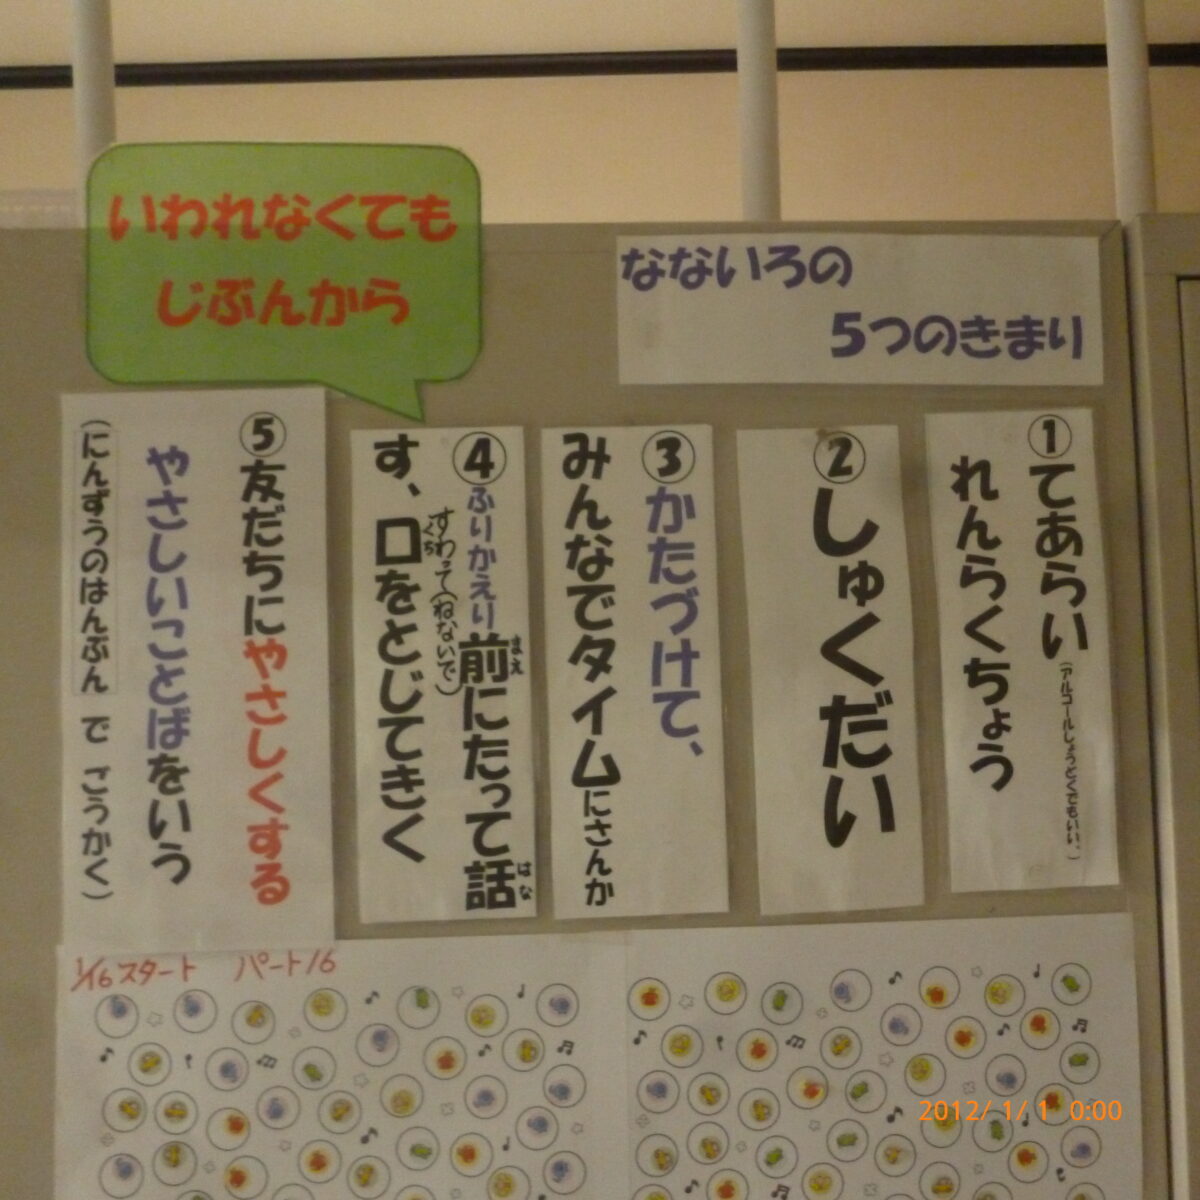 いわれなくても
じぶんから
なないろの
5つのきまり
①てあらい(アルコールしょうどくでもいい。)
れんらくちょう
②しゅくだい
③かたづけて、
みんなでタイムにさんか
④ふりかえり前にたって話
まえ
はな
すわって(ねないで)
す、口をとじてきく
くち
⑤友だちにやさしくする
やさしいことばをいう
(にんずうのはんぶん で ごうかく)
1/16スタート パート16
2012/ 1/ 1 0:00